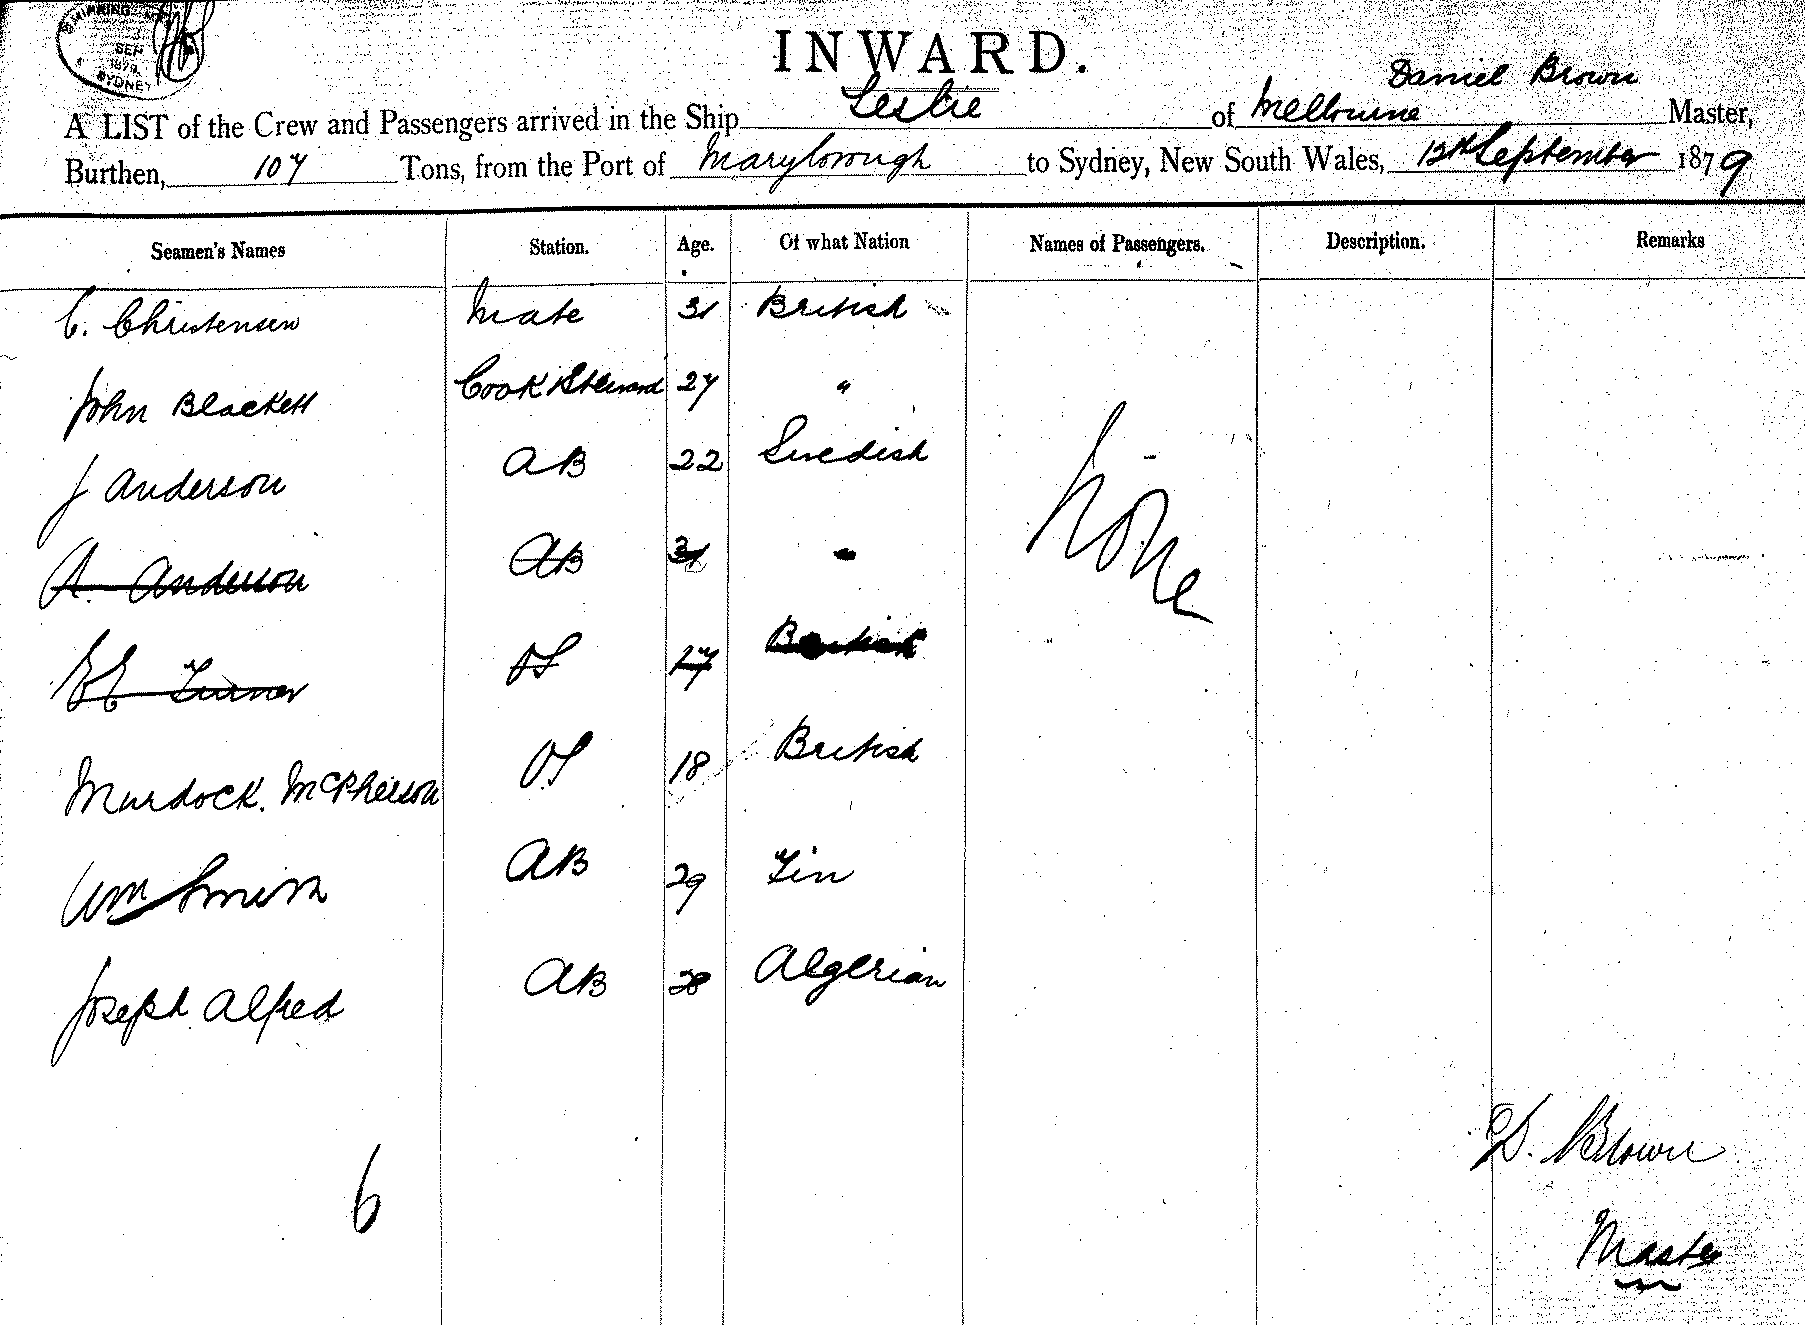 SHIPPING
SEP
1879
SYDNEY
INWARD.
Daniel Brown
A LIST of the Crew and Passengers arrived in the Ship Leslie of Melbourne Master,
Burthen, 107 Tons, from the Port of Maryborough to Sydney, New South Wales, 12th September 1879
Seamen's Names Station. Age. Of what Nation Names of Passengers. Description. Remarks
C. Christensen Mate 31 British
John Blackett Cook & Steward 27 "
J Anderson AB 22 Swedish
None
A. Anderson AB 31 "
EE Turner OS 17 British
Murdock. McPherson OS 18 British
Wm Smith AB 29 Fin
Joseph Alfred AB 28 Algerian
D. Brown
6
Master